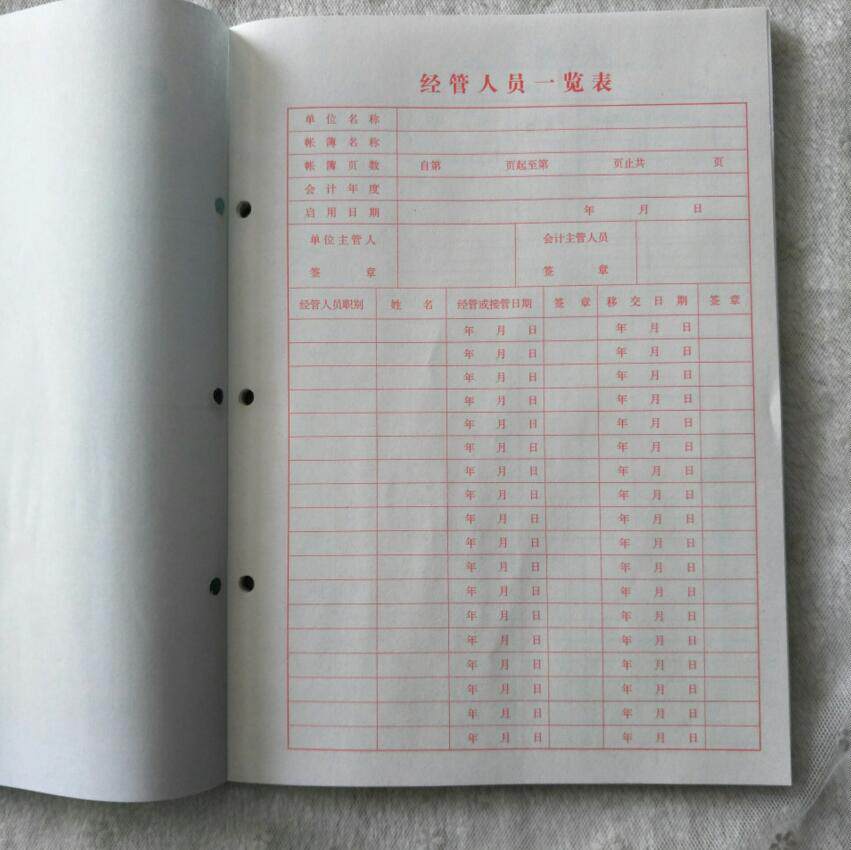 经管人员一览表
单位名称
帐簿名称
帐簿页数 自第 页起至第 页止共 页
会计年度
启用日期 年 月 日
单位主管人 会计主管人员
签章 签章
经管人员职别 姓名 经管或接管日期 签章 移交日期 签章
年 月 日 年 月 日
年 月 日 年 月 日
年 月 日 年 月 日
年 月 日 年 月 日
年 月 日 年 月 日
年 月 日 年 月 日
年 月 日 年 月 日
年 月 日 年 月 日
年 月 日 年 月 日
年 月 日 年 月 日
年 月 日 年 月 日
年 月 日 年 月 日
年 月 日 年 月 日
年 月 日 年 月 日
年 月 日 年 月 日
年 月 日 年 月 日
年 月 日 年 月 日
年 月 日 年 月 日